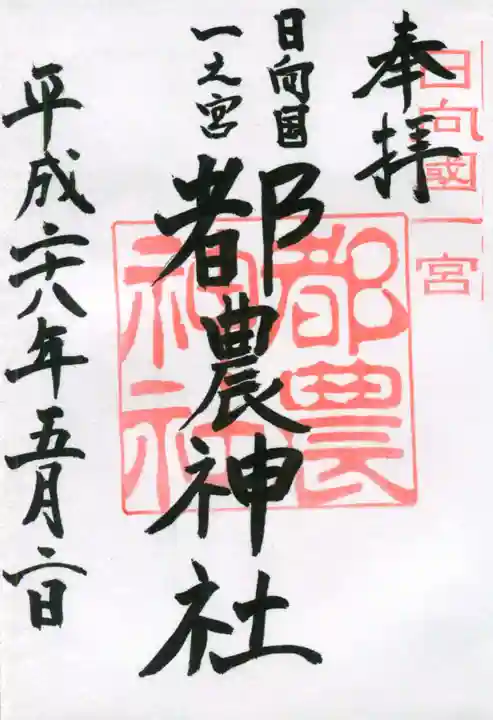 奉拝
日向國一宮
日向国
一之宮
都農神社
都農
神社
平成二十八年五月二日